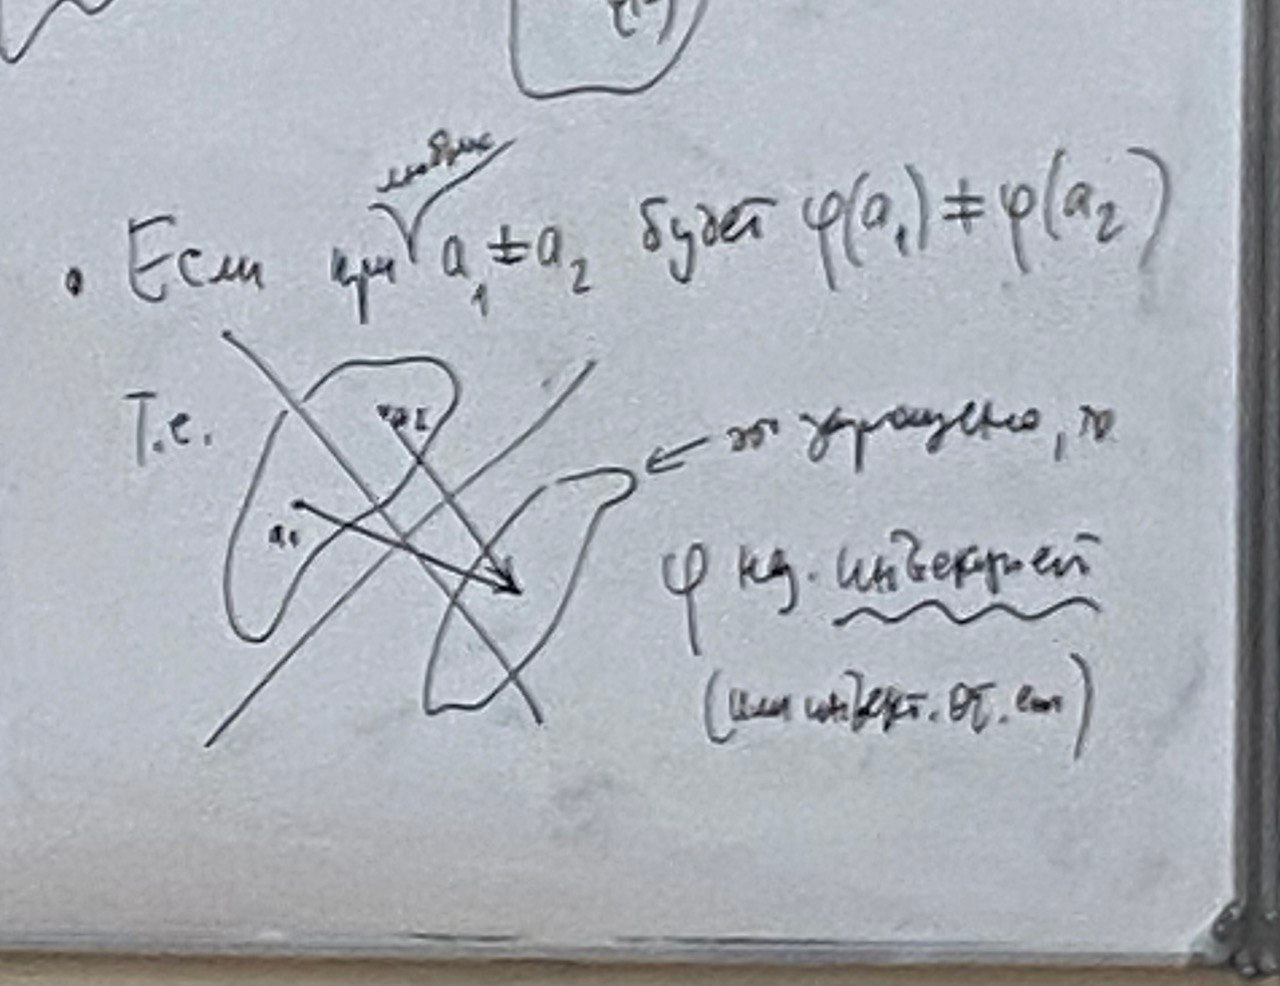 • Если при любых a₁ ≠ a₂ будет φ(a₁) ≠ φ(a₂)
Т.е.
a₂
a₁
← это запрещено, то
φ наз. инъекцией
(или инъект. от.ем)